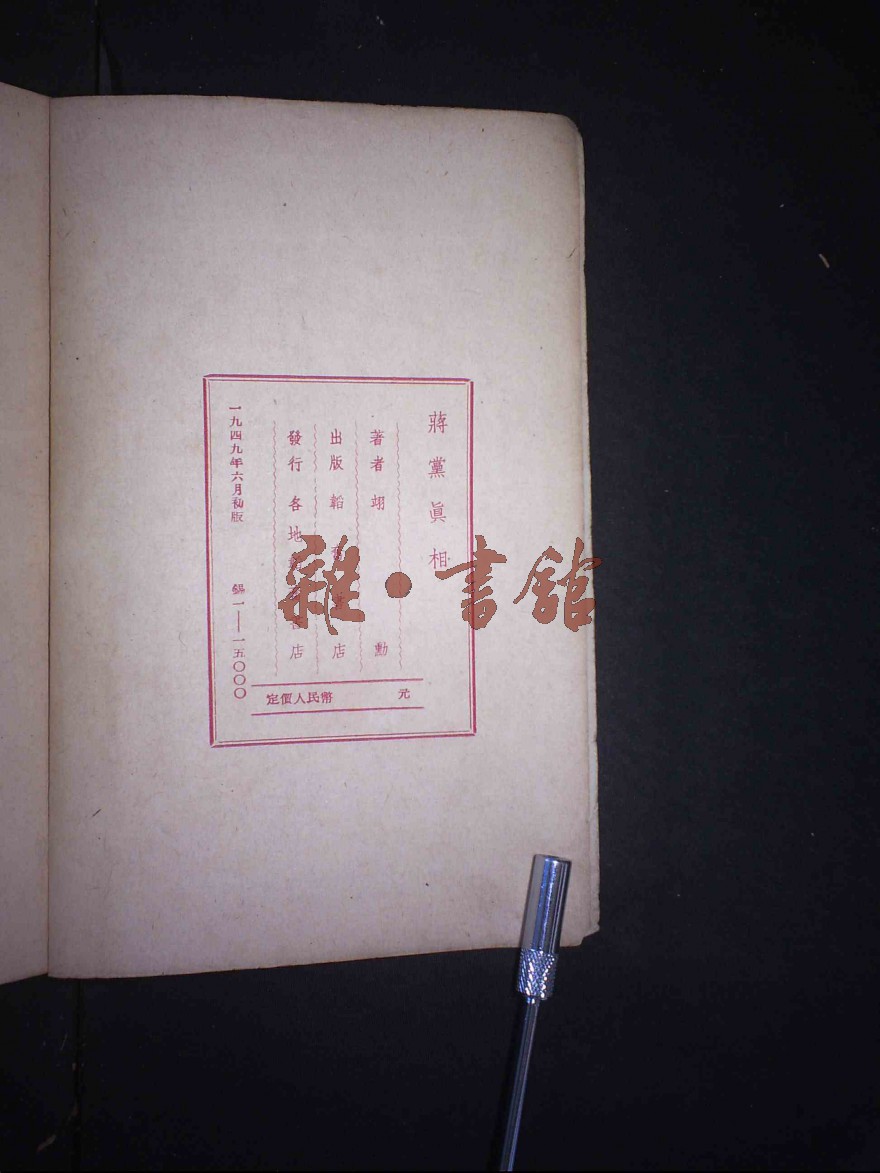 蔣黨眞相
著者 翊勳
出版 韜 店
發行 各地 店
一九四九年六月初版 錫一——一五〇〇〇
定價人民幣 元
雜·書館